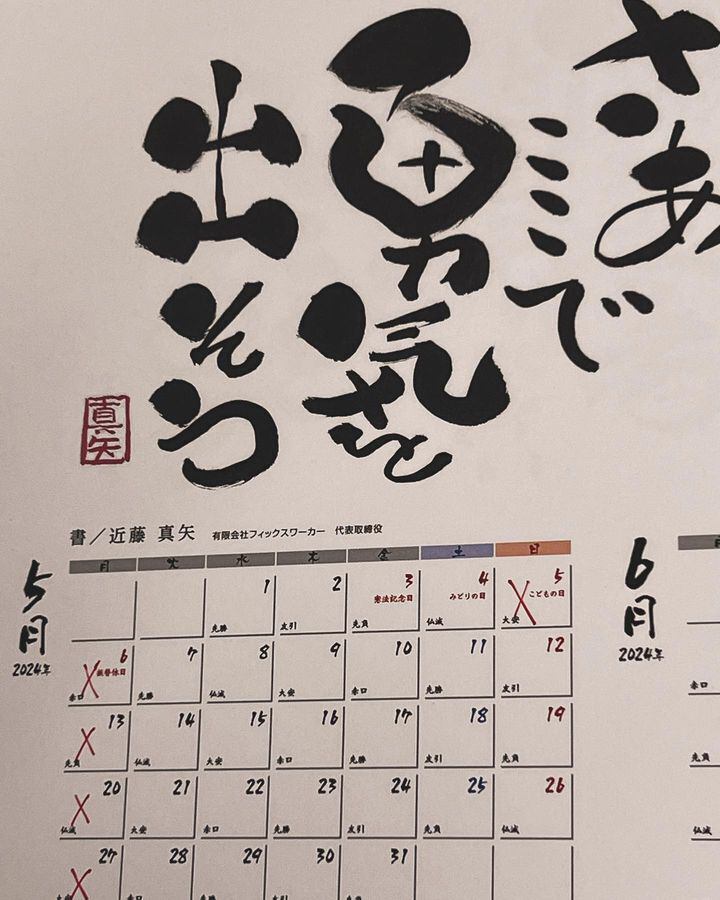 さあ
ここで
勇気を
出そう
真矢
書/近藤 真矢 有限会社フィックスワーカー 代表取締役
5月
2024年
月 火 水 木 金 土 日
1 2 3 4 5
憲法記念日 みどりの日 こどもの日
先勝 友引 先負 仏滅 大安
6 7 8 9 10 11 12
振替休日
赤口 先勝 仏滅 大安 赤口 先勝 友引
13 14 15 16 17 18 19
先負 仏滅 大安 赤口 先勝 友引 先負
20 21 22 23 24 25 26
仏滅 大安 赤口 先勝 友引 先負 仏滅
27 28 29 30 31
大安 赤口 先勝 友引 先負
6月
2024年
月
赤口
先負
仏滅